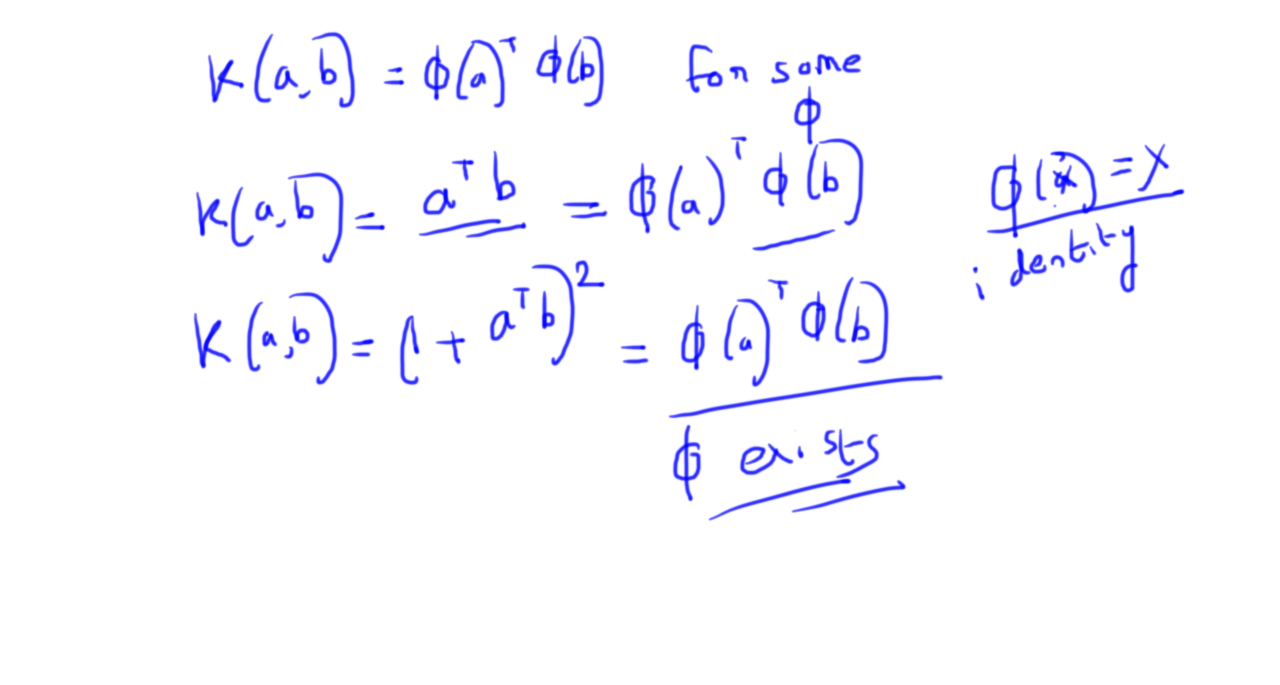 K(a,b) = ϕ(a)ᵀ ϕ(b) for some ϕ
K(a,b) = aᵀb = ϕ(a)ᵀ ϕ(b) ϕ(x) = x
identity
K(a,b) = (1 + aᵀb)² = ϕ(a)ᵀ ϕ(b)
ϕ exists